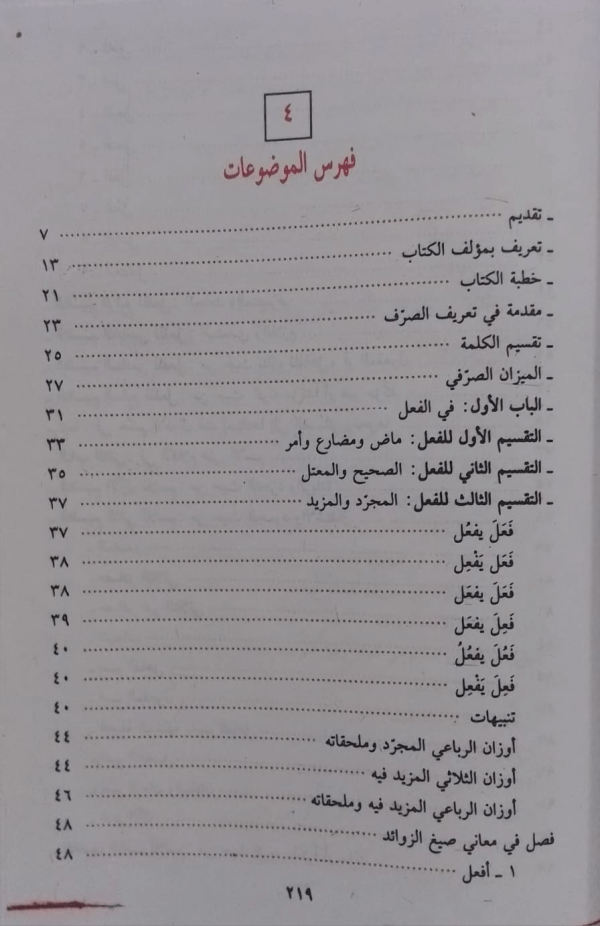 ٤
فهرس الموضوعات
ـ تقديم ........ ٧
ـ تعريف بمؤلف الكتاب ........ ١٣
ـ خطبة الكتاب ........ ٢١
ـ مقدمة في تعريف الصرّف ........ ٢٣
ـ تقسيم الكلمة ........ ٢٥
ـ الميزان الصرّفي ........ ٢٧
ـ الباب الأول: في الفعل ........ ٣١
ـ التقسيم الأول للفعل: ماض ومضارع وأمر ........ ٣٣
ـ التقسيم الثاني للفعل: الصحيح والمعتل ........ ٣٥
ـ التقسيم الثالث للفعل: المجرّد والمزيد ........ ٣٧
فَعَلَ يفعُل ........ ٣٧
فَعَلَ يَفْعِل ........ ٣٨
فَعَلَ يفعَل ........ ٣٨
فَعِلَ يفعَل ........ ٣٩
فَعُلَ يفعُلُ ........ ٤٠
فَعِلَ يَفْعِل ........ ٤٠
تنبيهات ........ ٤٠
أوزان الرباعي المجرّد وملحقاته ........ ٤٤
أوزان الثلاثي المزيد فيه ........ ٤٤
أوزان الرباعي المزيد فيه وملحقاته ........ ٤٦
فصل في معاني صيغ الزوائد ........ ٤٨
١ ـ أفعل ........ ٤٨
٢١٩